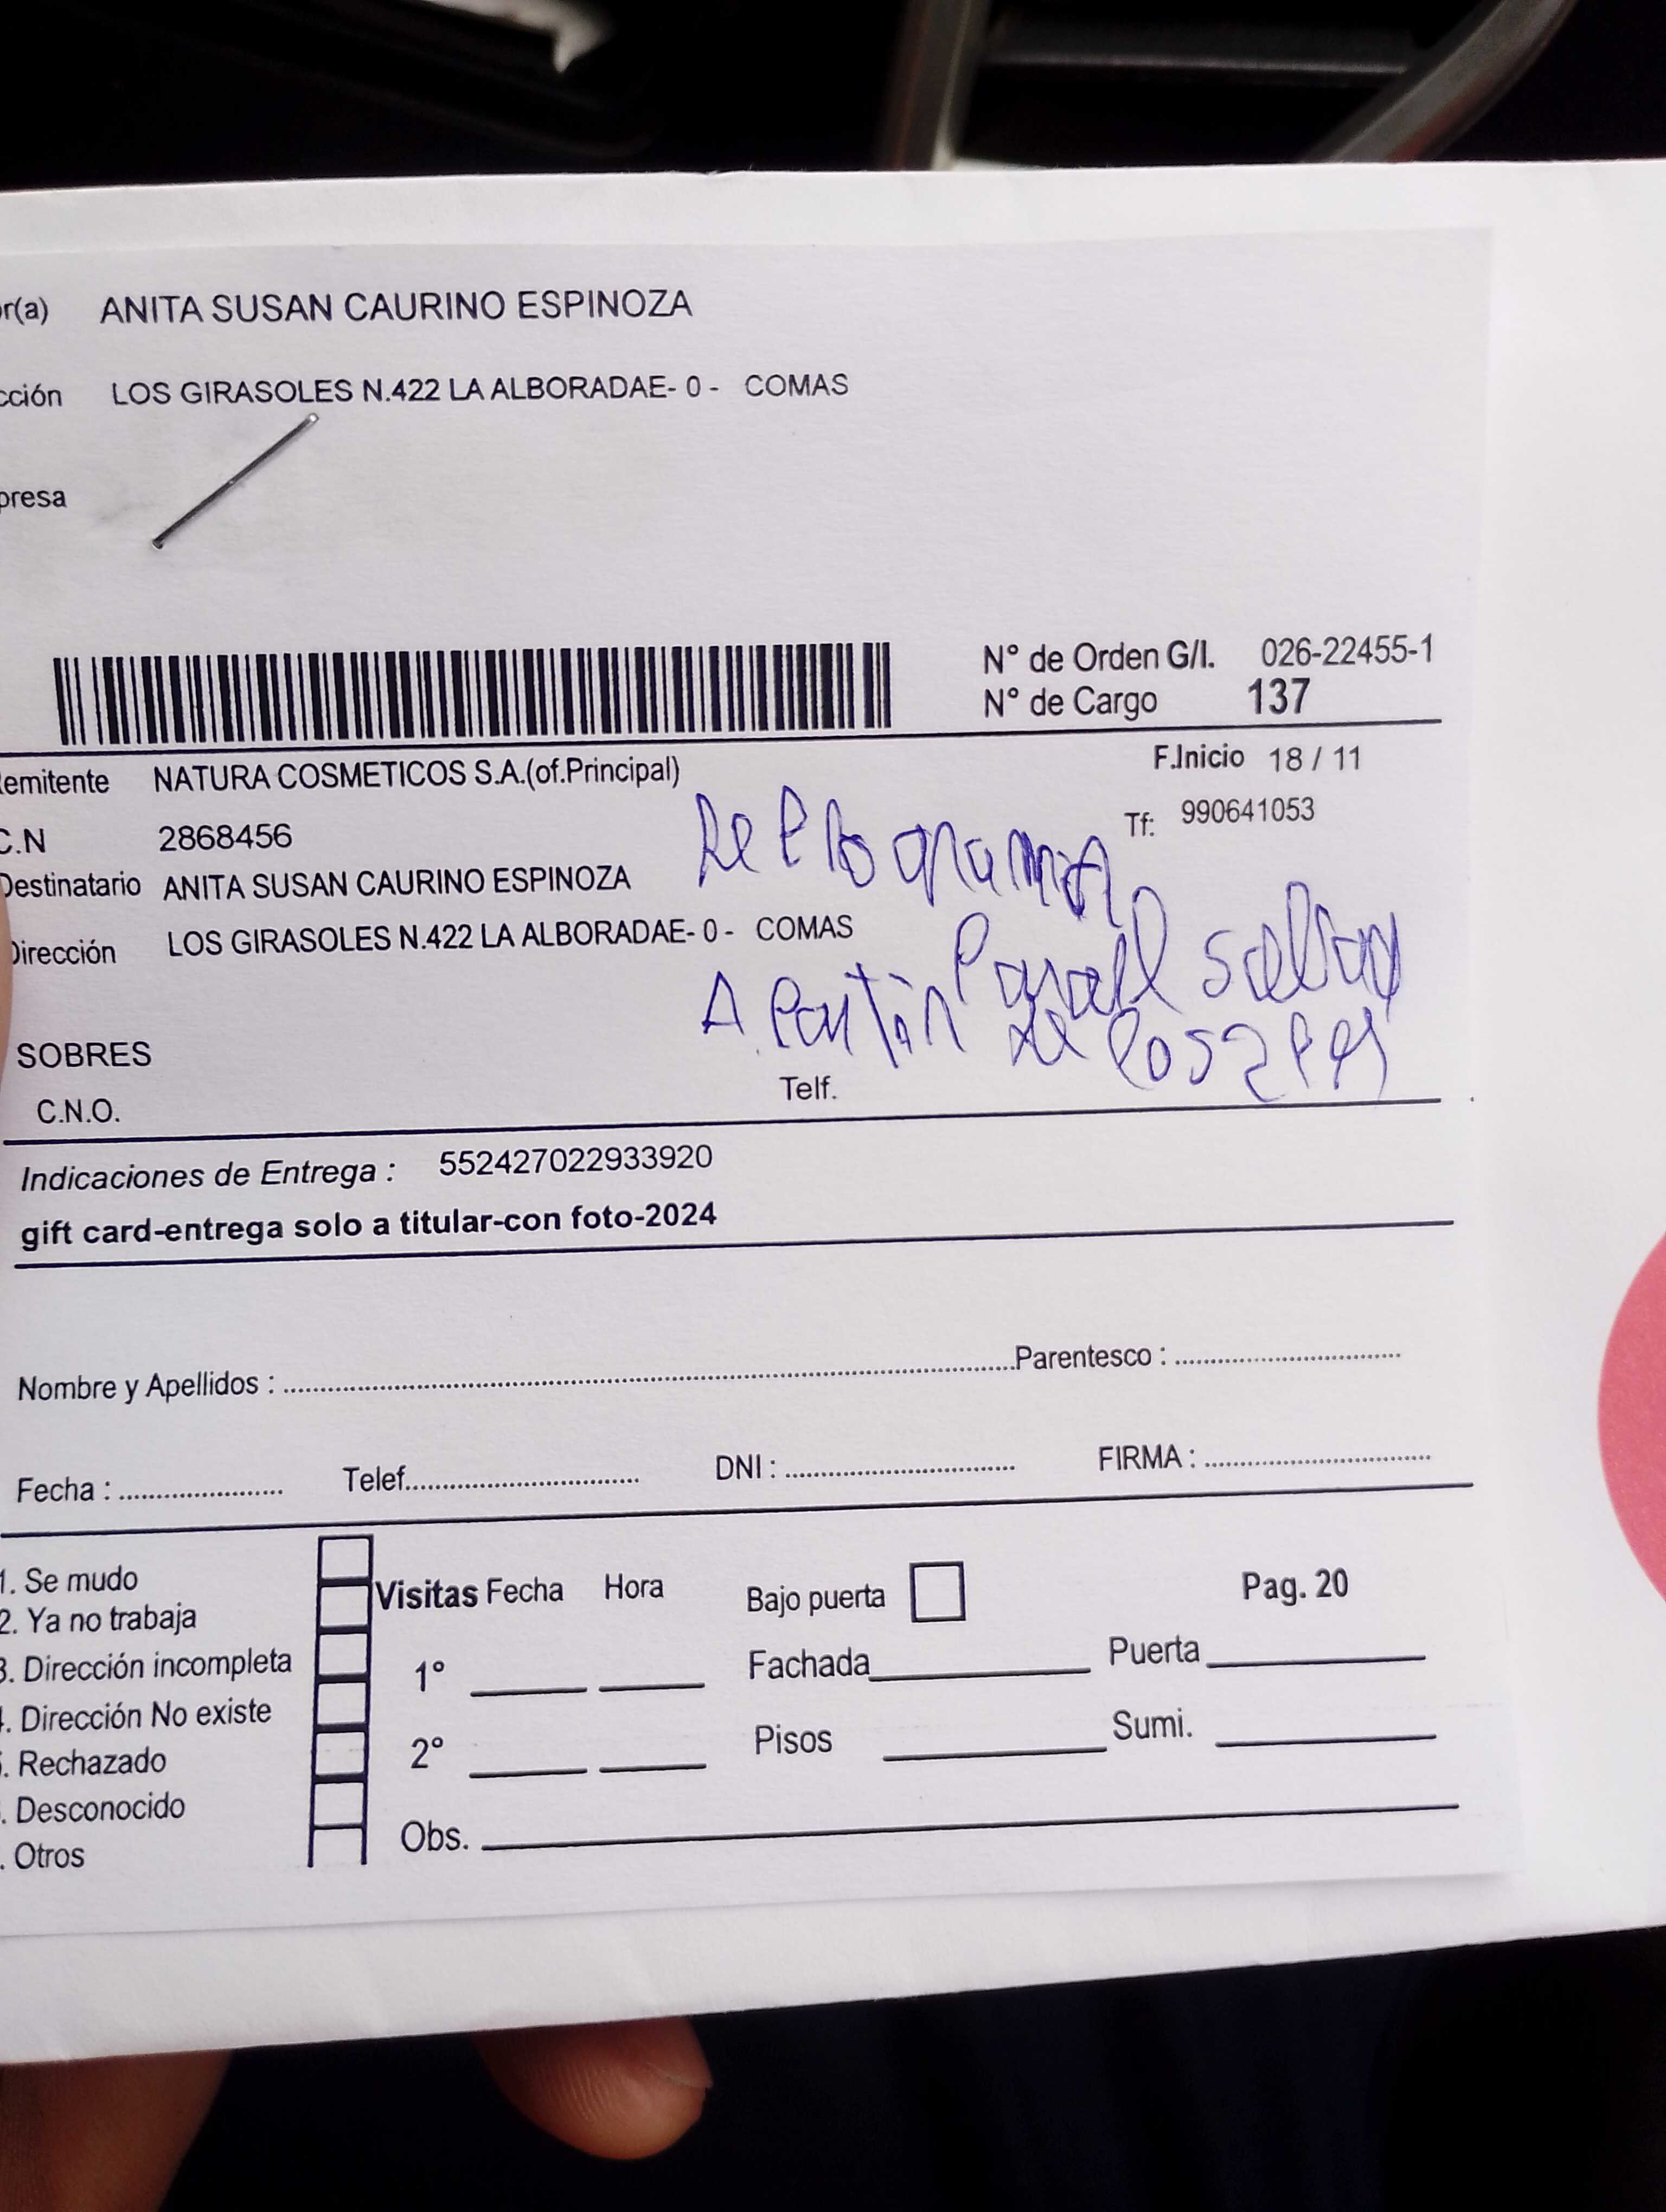 r(a) ANITA SUSAN CAURINO ESPINOZA
cción LOS GIRASOLES N.422 LA ALBORADAE- 0 - COMAS
presa
N° de Orden G/I. 026-22455-1
N° de Cargo 137
emitente NATURA COSMETICOS S.A.(of.Principal)
F.Inicio 18 / 11
C.N 2868456
Tf: 990641053
Destinatario ANITA SUSAN CAURINO ESPINOZA
Dirección LOS GIRASOLES N.422 LA ALBORADAE- 0 - COMAS
Para el sabad
A Partir de las 2 P
SOBRES
Telf.
C.N.O.
Indicaciones de Entrega : 552427022933920
gift card-entrega solo a titular-con foto-2024
Nombre y Apellidos : Parentesco :
Fecha : Telef. DNI : FIRMA :
1. Se mudo
2. Ya no trabaja
3. Dirección incompleta
. Dirección No existe
. Rechazado
. Desconocido
. Otros
Visitas Fecha Hora
1°
2°
Obs.
Bajo puerta Pag. 20
Fachada Puerta
Pisos Sumi.